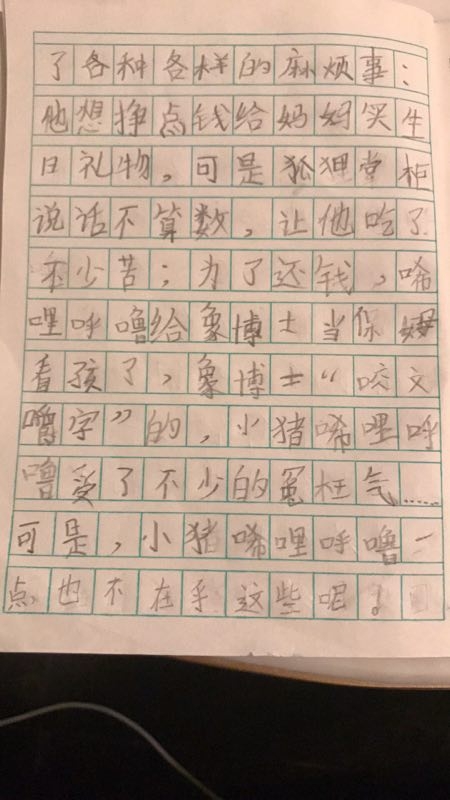 了各种各样的麻烦事：
他想挣点钱给妈妈买生
日礼物，可是狐狸掌柜
说话不算数，让他吃了
不少苦；为了还钱，唏
哩呼噜给象博士当保姆
看孩了，象博士“咬文
嚼字”的，小猪唏哩呼
噜受了不少的冤枉气……
可是，小猪唏哩呼噜一
点也不在乎这些呢！